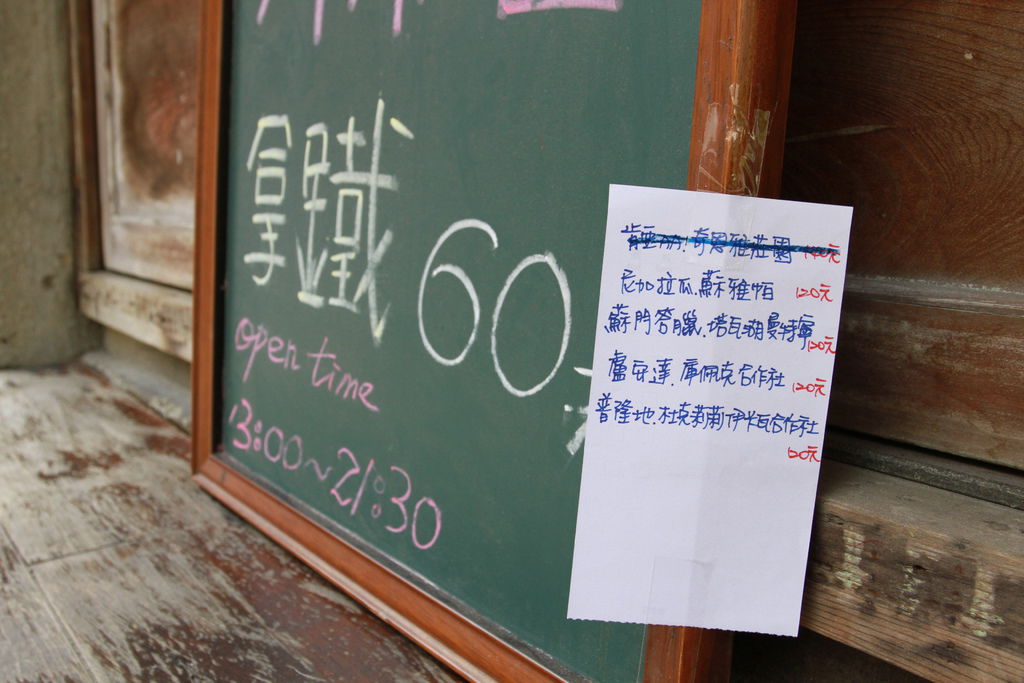 拿鐵 60元
open time
13:00~21:30
肯亞.奇恩雅莊園 140元
尼加拉瓜.蘇雅帕 120元
蘇門答臘.塔瓦湖曼特寧
120元
盧安達.庫佩克合作社 120元
普隆地.杜克茀蘭伊卡瓦合作社
120元